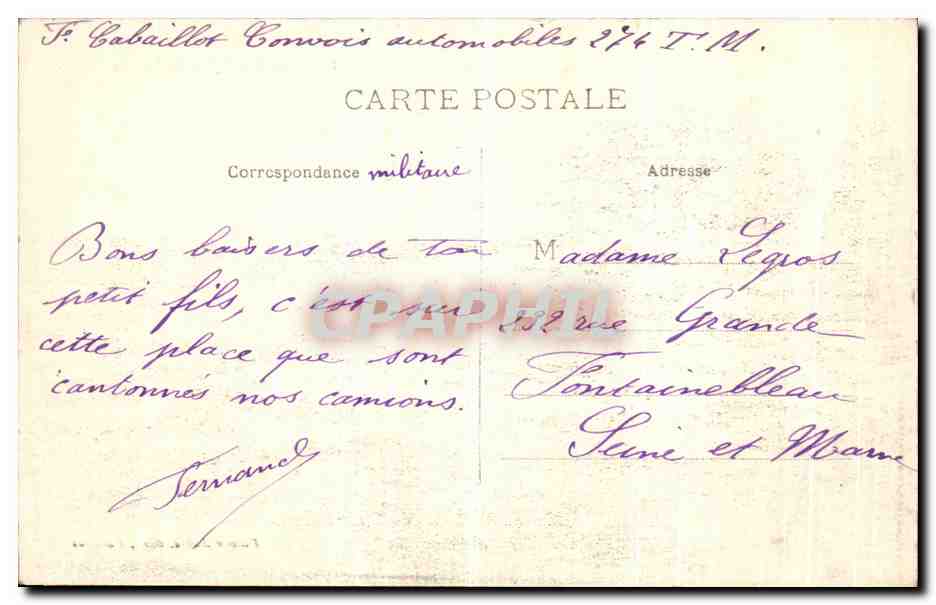 Fd Cabaillot Convois automobiles 274 T. M.
CARTE POSTALE
Correspondance militaire
Adresse
Bons baisers de ton
petit fils, c'est sur
cette place que sont
cantonnés nos camions.
Fernand
Madame Legros
232 rue Grande
Fontainebleau
Seine et Marne
CPAPHIL